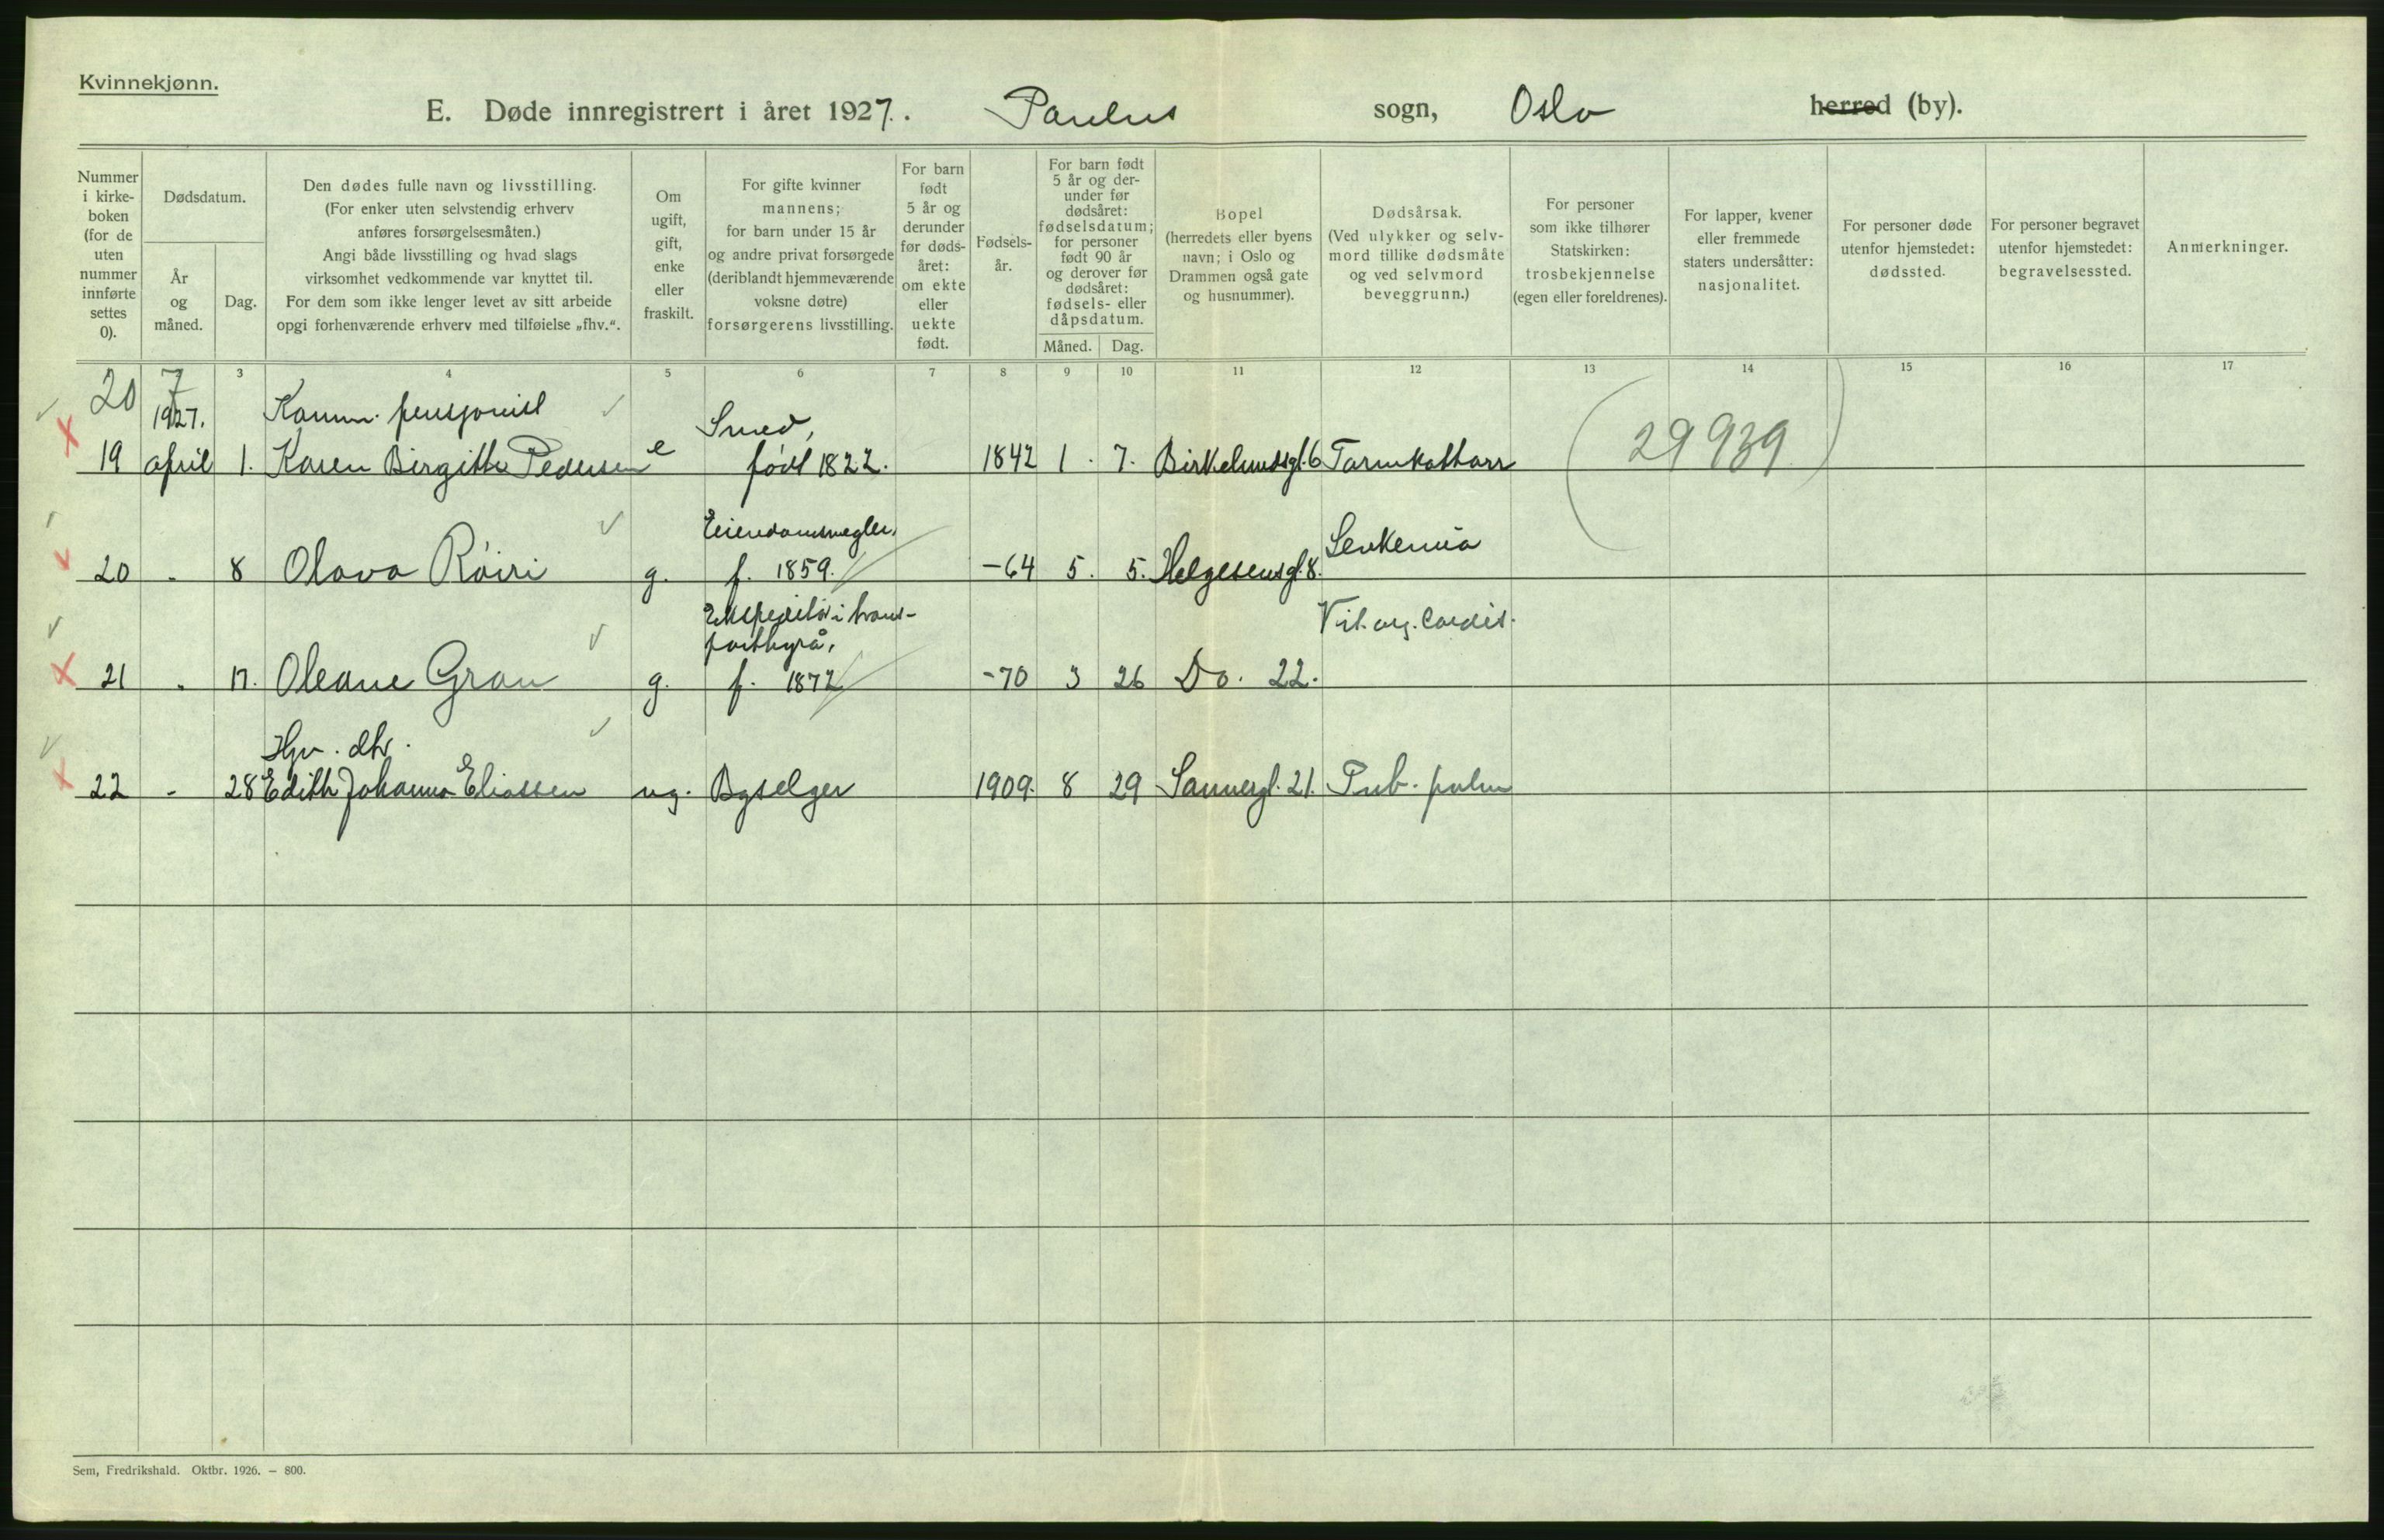 Kvinnekjønn.
E. Døde innregistrert i året 1927. Paulus sogn, Oslo herred (by).
Nummer i kirke- boken (for de uten nummer innførte settes 0).
Dødsdatum.
År og måned.
Dag.
Den dødes fulle navn og livsstilling.
(For enker uten selvstendig erhverv
anføres forsørgelsesmåten.)
Angi både livsstilling og hvad slags
virksomhet vedkommende var knyttet til.
For dem som ikke lenger levet av sitt arbeide
opgi forhenværende erhverv med tilføielse „fhv.“.
Om ugift, gift, enke eller fraskilt.
For gifte kvinner
mannens;
for barn under 15 år
og andre privat forsørgede
(deriblandt hjemmeværende
voksne døtre)
forsørgerens livsstilling.
For barn født 5 år og derunder før døds- året: om ekte eller uekte født.
Fødsels- år.
For barn født
5 år og der-
under før
dødsåret:
fødselsdatum;
for personer
født 90 år
og derover før
dødsåret:
fødsels- eller
dåpsdatum.
Måned. Dag.
Bopel
(herredets eller byens
navn; i Oslo og
Drammen også gate
og husnummer).
Dødsårsak.
(Ved ulykker og selv-
mord tillike dødsmåte
og ved selvmord
beveggrunn.)
For personer
som ikke tilhører
Statskirken:
trosbekjennelse
(egen eller foreldrenes).
For lapper, kvener
eller fremmede
staters undersåtter:
nasjonalitet.
For personer døde
utenfor hjemstedet:
dødssted.
For personer begravet
utenfor hjemstedet:
begravelsessted.
Anmerkninger.
3 4 5 6 7 8 9 10 11 12 13 14 15 16 17
20 7
1927. Komm. pensjonist Smed,
19 april 1. Karen Birgitte Pedersen e født 1822. 1842 1. 7. Birkelundsgt. 6 Tarmkatharr (29939)
Eiendomsmegler, Leukemia
20 - 8 Olava Röiri g. f. 1859. -64 5. 5. Helgesensgt. 8.
Ekspeditör i trans- Vit. org. cordis.
portbyrå,
21 - 17. Oleane Gran g. f. 1872 -70 3 26 Do. 22.
Hjv. dtr.
22 - 28 Edith Johanna Eliassen ug. Bgselger 1909. 8 29 Sannergt. 21. Tub. pulm
Sem, Fredrikshald. Oktbr. 1926. – 800.